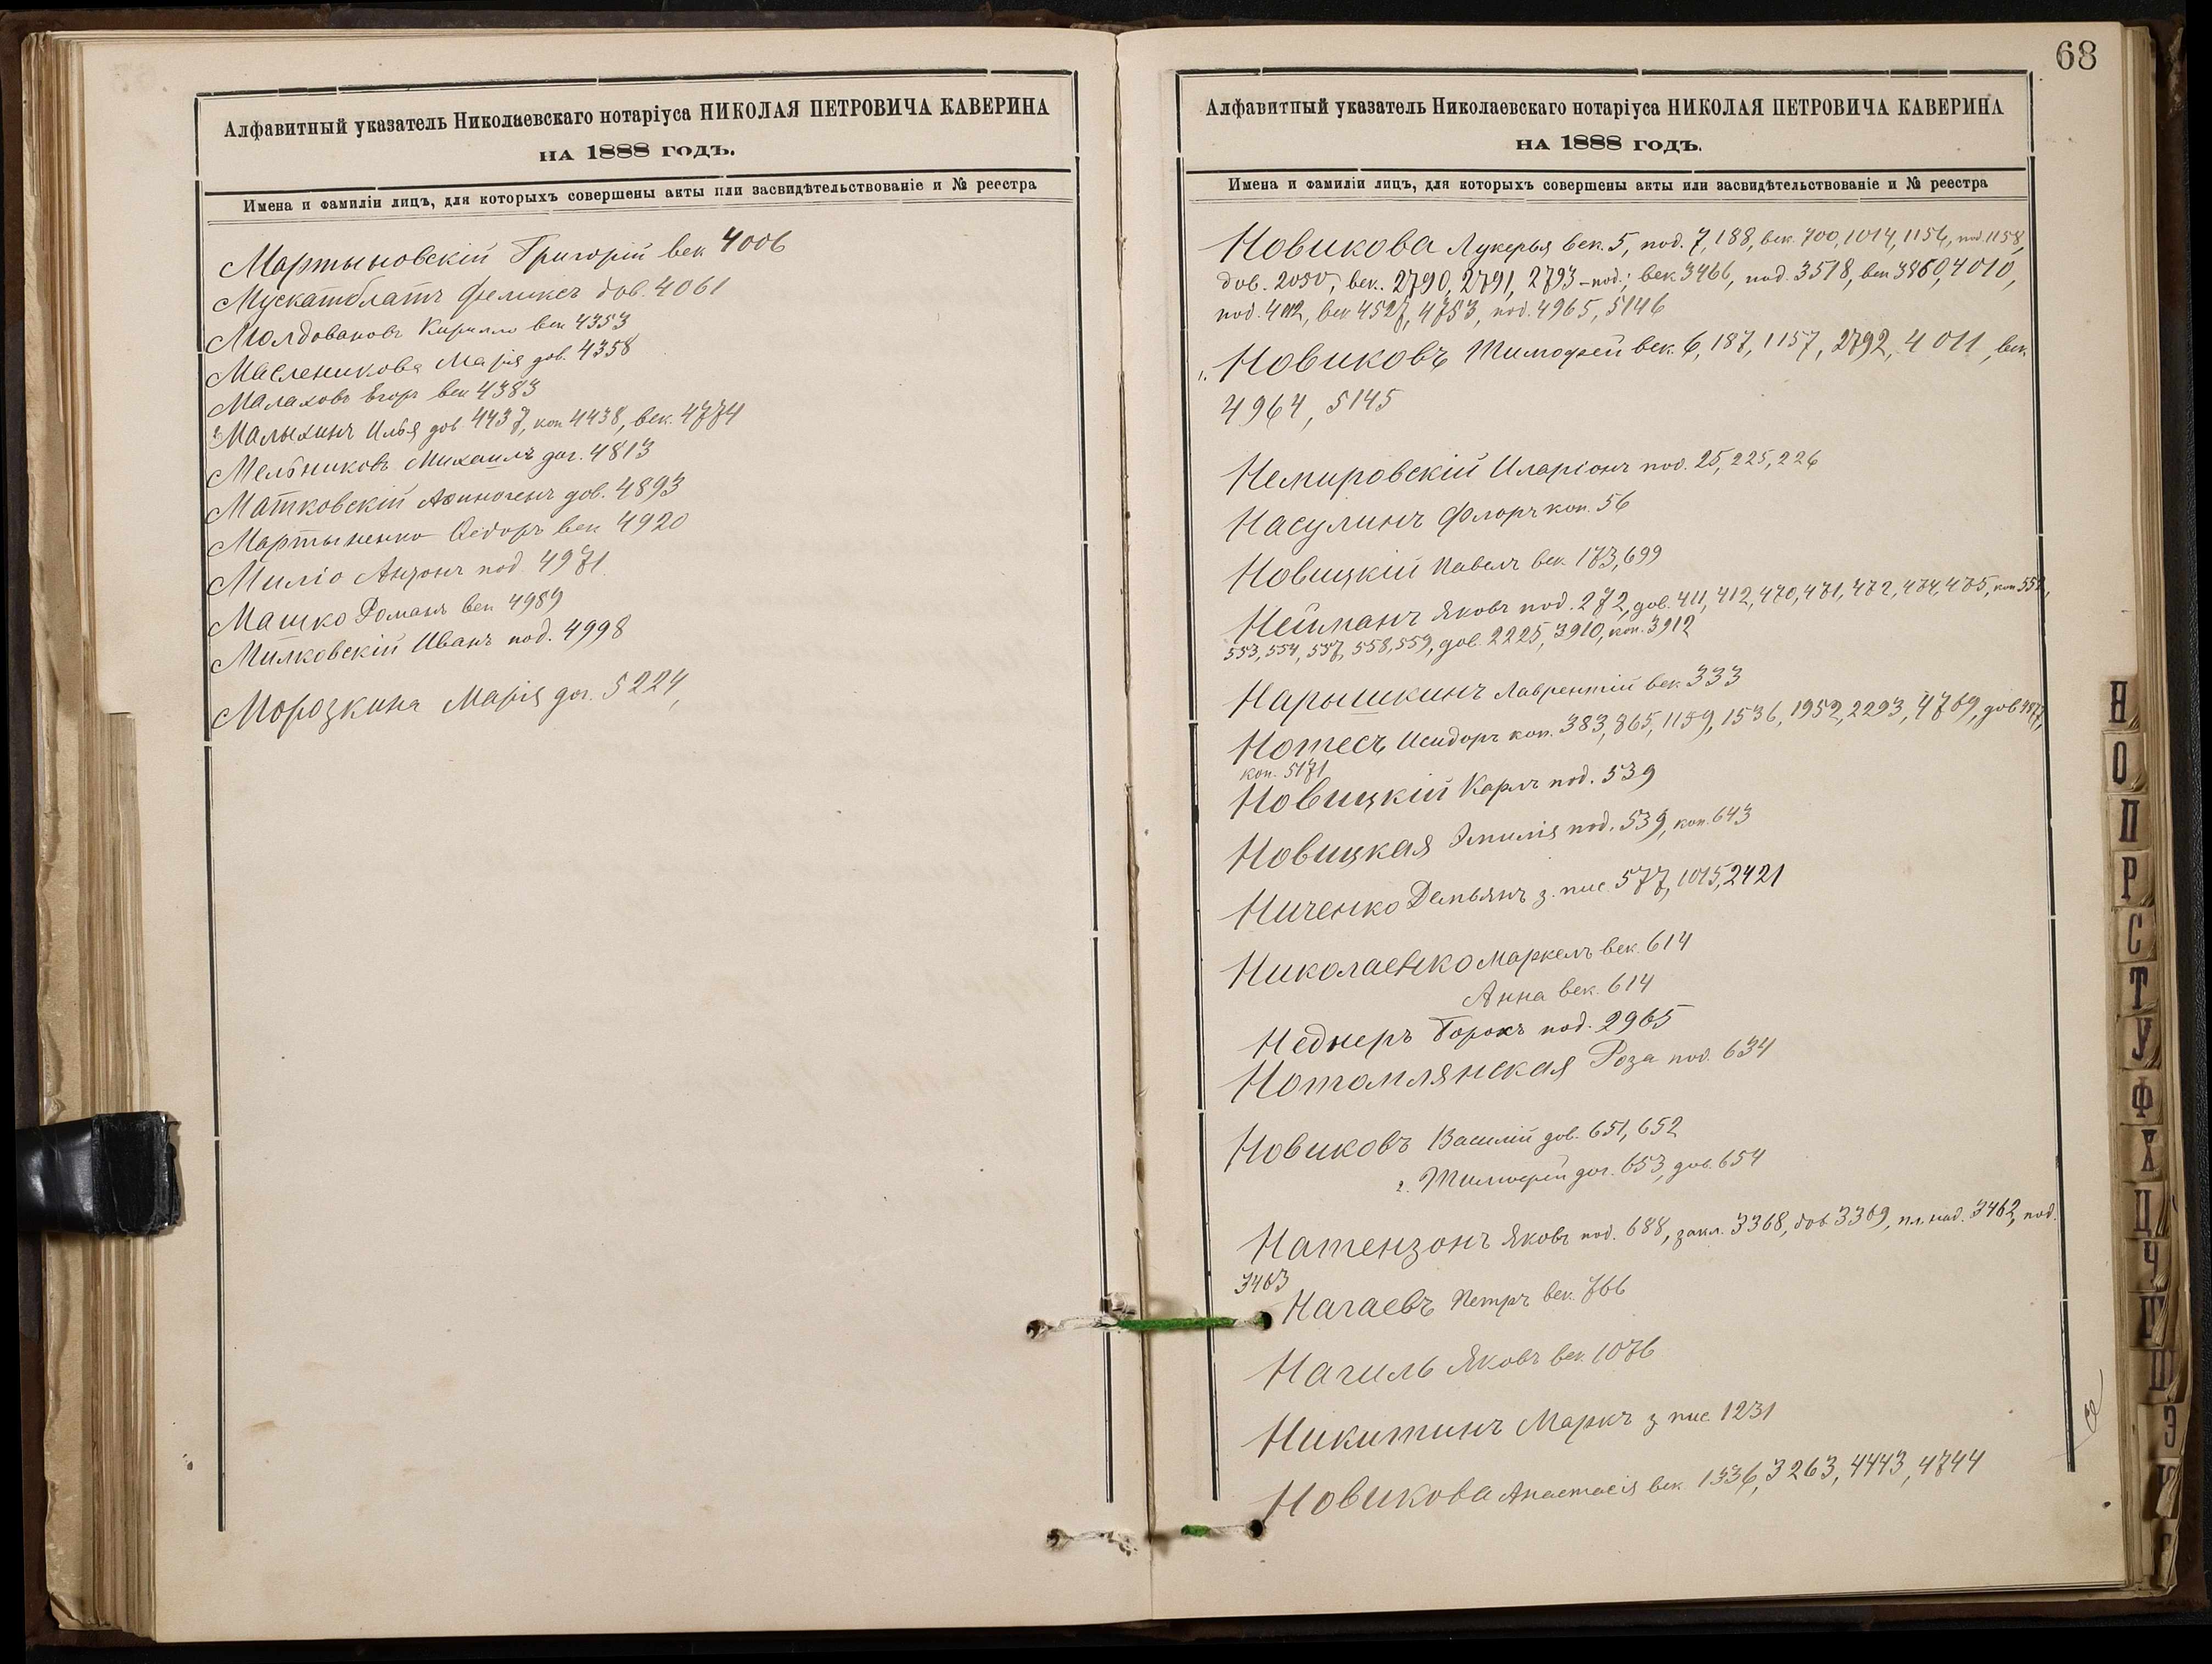 Алфавитный указатель Николаевскаго нотаріуса НИКОЛАЯ ПЕТРОВИЧА КАВЕРИНА
НА 1888 ГОДЪ.
Имена и фамиліи лицъ, для которыхъ совершены акты или засвидѣтельствованіе и № реестра
Мартыновскій Григорій век 4006
Мускатблатъ Феликсъ дов. 4061
Молдовановъ Кирилло век 4353
Масленикова Марія дов. 4358
Малаховъ Егоръ век 4383
Малыхинъ Илья дов 4437, коп 4438, век. 4774
Мельниковъ Михаилъ дог. 4813
Матковскій Афиногенъ дов. 4893
Мартыненко Ѳедоръ век 4920
Миліо Антонъ под 4971
Машко Романъ век 4989
Милковскій Иванъ под. 4998
Морозкина Марія дог. 5224,
68
Алфавитный указатель Николаевскаго нотаріуса НИКОЛАЯ ПЕТРОВИЧА КАВЕРИНА
НА 1888 ГОДЪ.
Имена и фамиліи лицъ, для которыхъ совершены акты или засвидѣтельствованіе и № реестра
Новикова Лукерья век. 5, под. 7, 188, век. 700, 1014, 1156, под. 1158,
дов. 2050, век. 2790, 2791, 2793 - под.; век 3466, под. 3518, век 3860, 4010,
под. 4012, век 4527, 4753, под. 4965, 5146
1. Новиковъ Тимофей век. 6, 187, 1157, 2792, 4011, век.
4964, 5145
Немировскій Иларіонъ под. 25, 225, 226
Насулинъ Флоръ коп. 56
Новицкій Павелъ век. 173, 699
Нейманъ Яковъ под. 272, дов. 411, 412, 470, 471, 472, 474, 475, коп 552,
553, 554, 557, 558, 559, дов. 2225, 3910, коп. 3912
Нарышкинъ Лаврентій век. 333
Нотесъ Исидоръ коп. 383, 865, 1159, 1536, 1952, 2293, 4769, дов
коп. 5171
Новицкій Карлъ под. 539
Новицкая Эмилія под. 539, коп. 643
Ниченко Демьянъ з. пис. 577, 1015, 2421
Николаенко Маркелъ век. 614
Анна век. 614
Неднеръ Борохъ под. 2965
Нотомлянская Роза под. 634
Новиковъ Василій дов. 651, 652
2. Тимофей дог. 653, дов. 654
Натензонъ Яковъ под. 688, закл. 3368, дов 3369, пл. над. 3462, под.
3463
Нагаевъ Петръ век. 766
Нагиль Яковъ век. 1076
Никитинъ Маркъ з пис 1231
Новикова Анастасія век 1336, 3263, 4443, 4744
Н
О
П
Р
С
Т
У
Ф
Х
Ц
Ч
Ш
Щ
Э